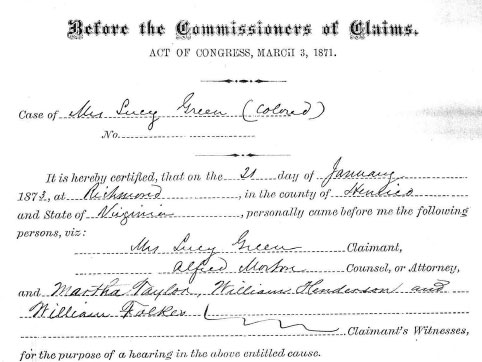 Before the Commissioners of Claims.
ACT OF CONGRESS, MARCH 3, 1871.
Case of Mrs Lucy Green (Colored)
No.
It is hereby certified, that on the 21 day of January
1873, at Richmond, in the county of Henrico
and State of Virginia, personally came before me the following
persons, viz:
Mrs Lucy Green Claimant,
Alfred Morton Counsel, or Attorney,
and Martha Taylor, William Henderson and
William
Claimant's Witnesses,
for the purpose of a hearing in the above entitled cause.